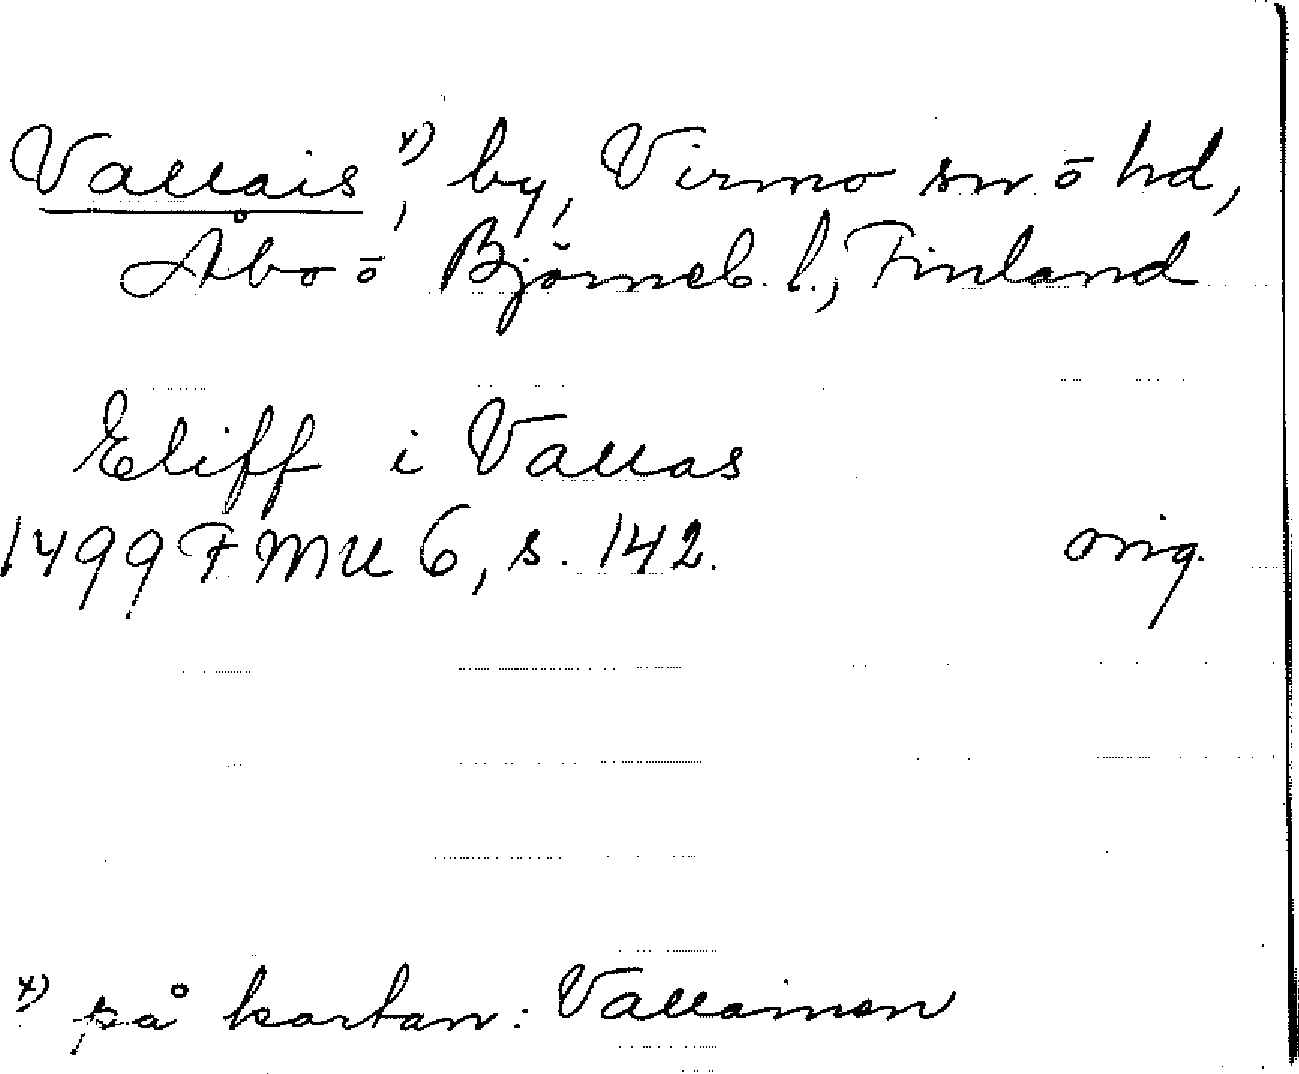 Vallais,x) by, Virmo sn ō hd,
Åbo ō Björneb. l., Finland
Eliff i Vallas
1499 FMU 6, s. 142. orig.
x) på kartan: Vallainen